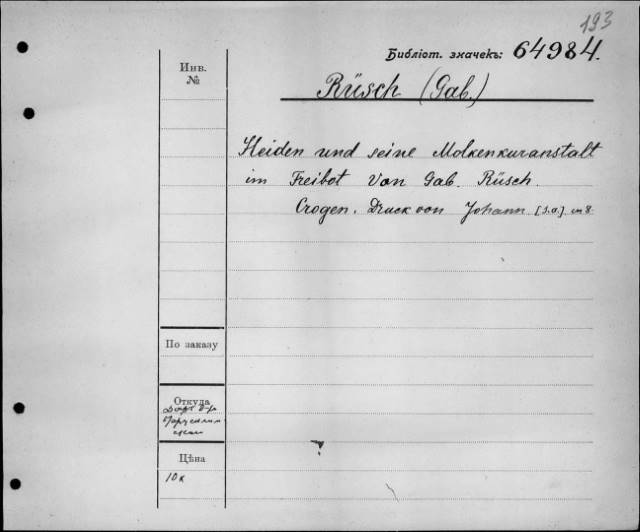 193
Библіот. значекъ: 64984.
Инв.
№
Rüsch (Gab.)
Heiden und seine Molkenkuranstalt
im Freibot von Gab. Rüsch.
Crogen. Druck von Johann. [s.a.] in 8.
По заказу
Откуда
Цѣна
10 к